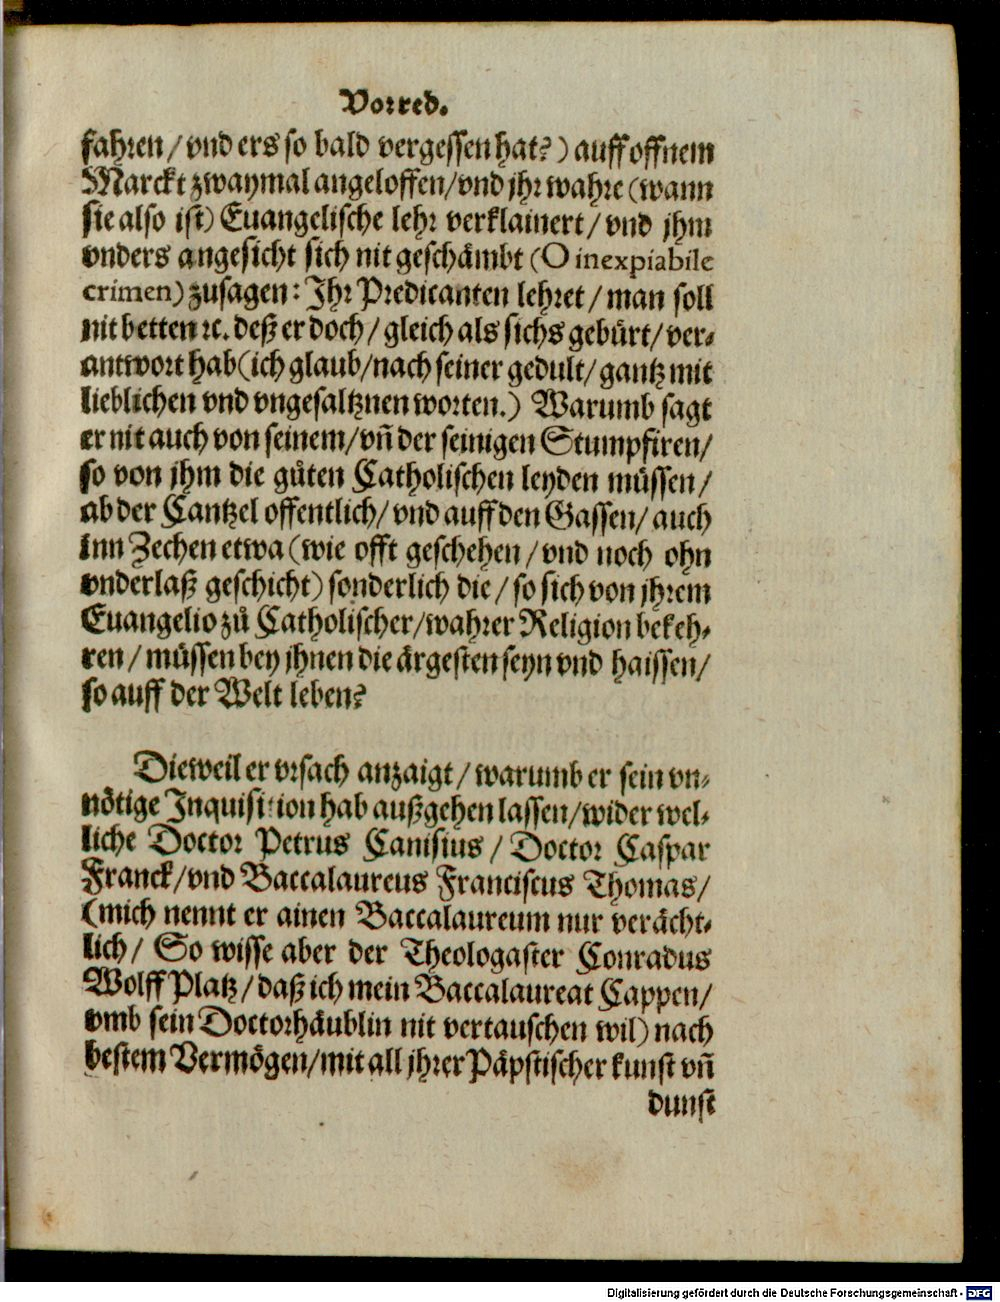 Vorred.
fahren/ vnd ers so bald vergessen hat?) auff offnem
Marckt zwaymal angeloffen/ vnd jhr wahre (wann
sie also ist) Euangelische lehr verklainert/ vnd jhm
vnders angesicht sich nit geschämbt (O inexpiabile
crimen) zusagen: Jhr Predicanten lehret/ man soll
nit betten ꝛc. deß er doch/ gleich als sichs gebürt/ ver-
antwort hab (ich glaub/ nach seiner gedult/ gantz mit
lieblichen vnd vngesaltznen worten.) Warumb sagt
er nit auch von seinem/ vñ der seinigen Stumpfiren/
so von jhm die gůten Catholischen leyden müssen/
ab der Cantzel offentlich/ vnd auff den Gassen/ auch
inn Zechen etwa (wie offt geschehen/ vnd noch ohn
vnderlaß geschicht) sonderlich die/ so sich von jhrem
Euangelio zů Catholischer/ wahrer Religion bekeh-
ren/ müssen bey jhnen die ärgesten seyn vnd haissen/
so auff der Welt leben?
Dieweil er vrsach anzaigt/ warumb er sein vn-
nötige Inquisition hab außgehen lassen/ wider wel-
liche Doctor Petrus Canisius/ Doctor Caspar
Franck/ vnd Baccalaureus Franciscus Thomas/
(mich nennt er ainen Baccalaureum nur verächt-
lich/ So wisse aber der Theologaster Conradus
Wolff Platz/ daß ich mein Baccalaureat Cappen/
vmb sein Doctorhäublin nit vertauschen wil) nach
bestem Vermögen/ mit all jhrer Päpstischer kunst vñ
dunst
Digitalisierung gefördert durch die Deutsche Forschungsgemeinschaft - DFG